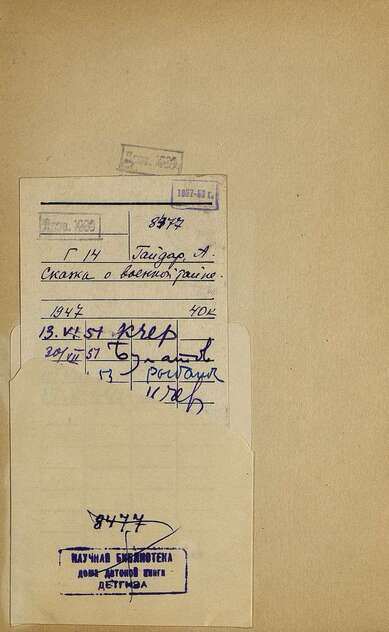 Пров. 1960
1957-58 г.
Пров. 1960
8477
Г 14 Гайдар, А.
Сказка о военной тайне.
1947 40к
13.VI 51 Кчер
20/III 51
8477
НАУЧНАЯ БИБЛИОТЕКА
дома детской книги
ДЕТГИЗА